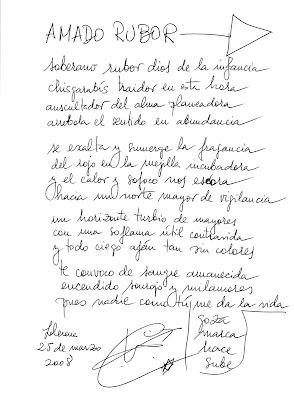 AMADO RUBOR
soberano rubor dios de la infancia
chisgarabís traidor en esta hora
auscultador del alma planeadora
arrebola el sentido en abundancia
se exalta y sumerge la fragancia
del rojo en la mejilla incubadora
y el calor y sofoco nos
hacia un norte mayor de vigilancia
un horizonte turbio de mayores
con una soflama útil contravida
y todo ciego afán tan sin colores
te convoco de sangre amanecida
encendido sonrojo y
pues nadie como tú me da la vida
25 de marzo
2008
goza
marca
hace
sube